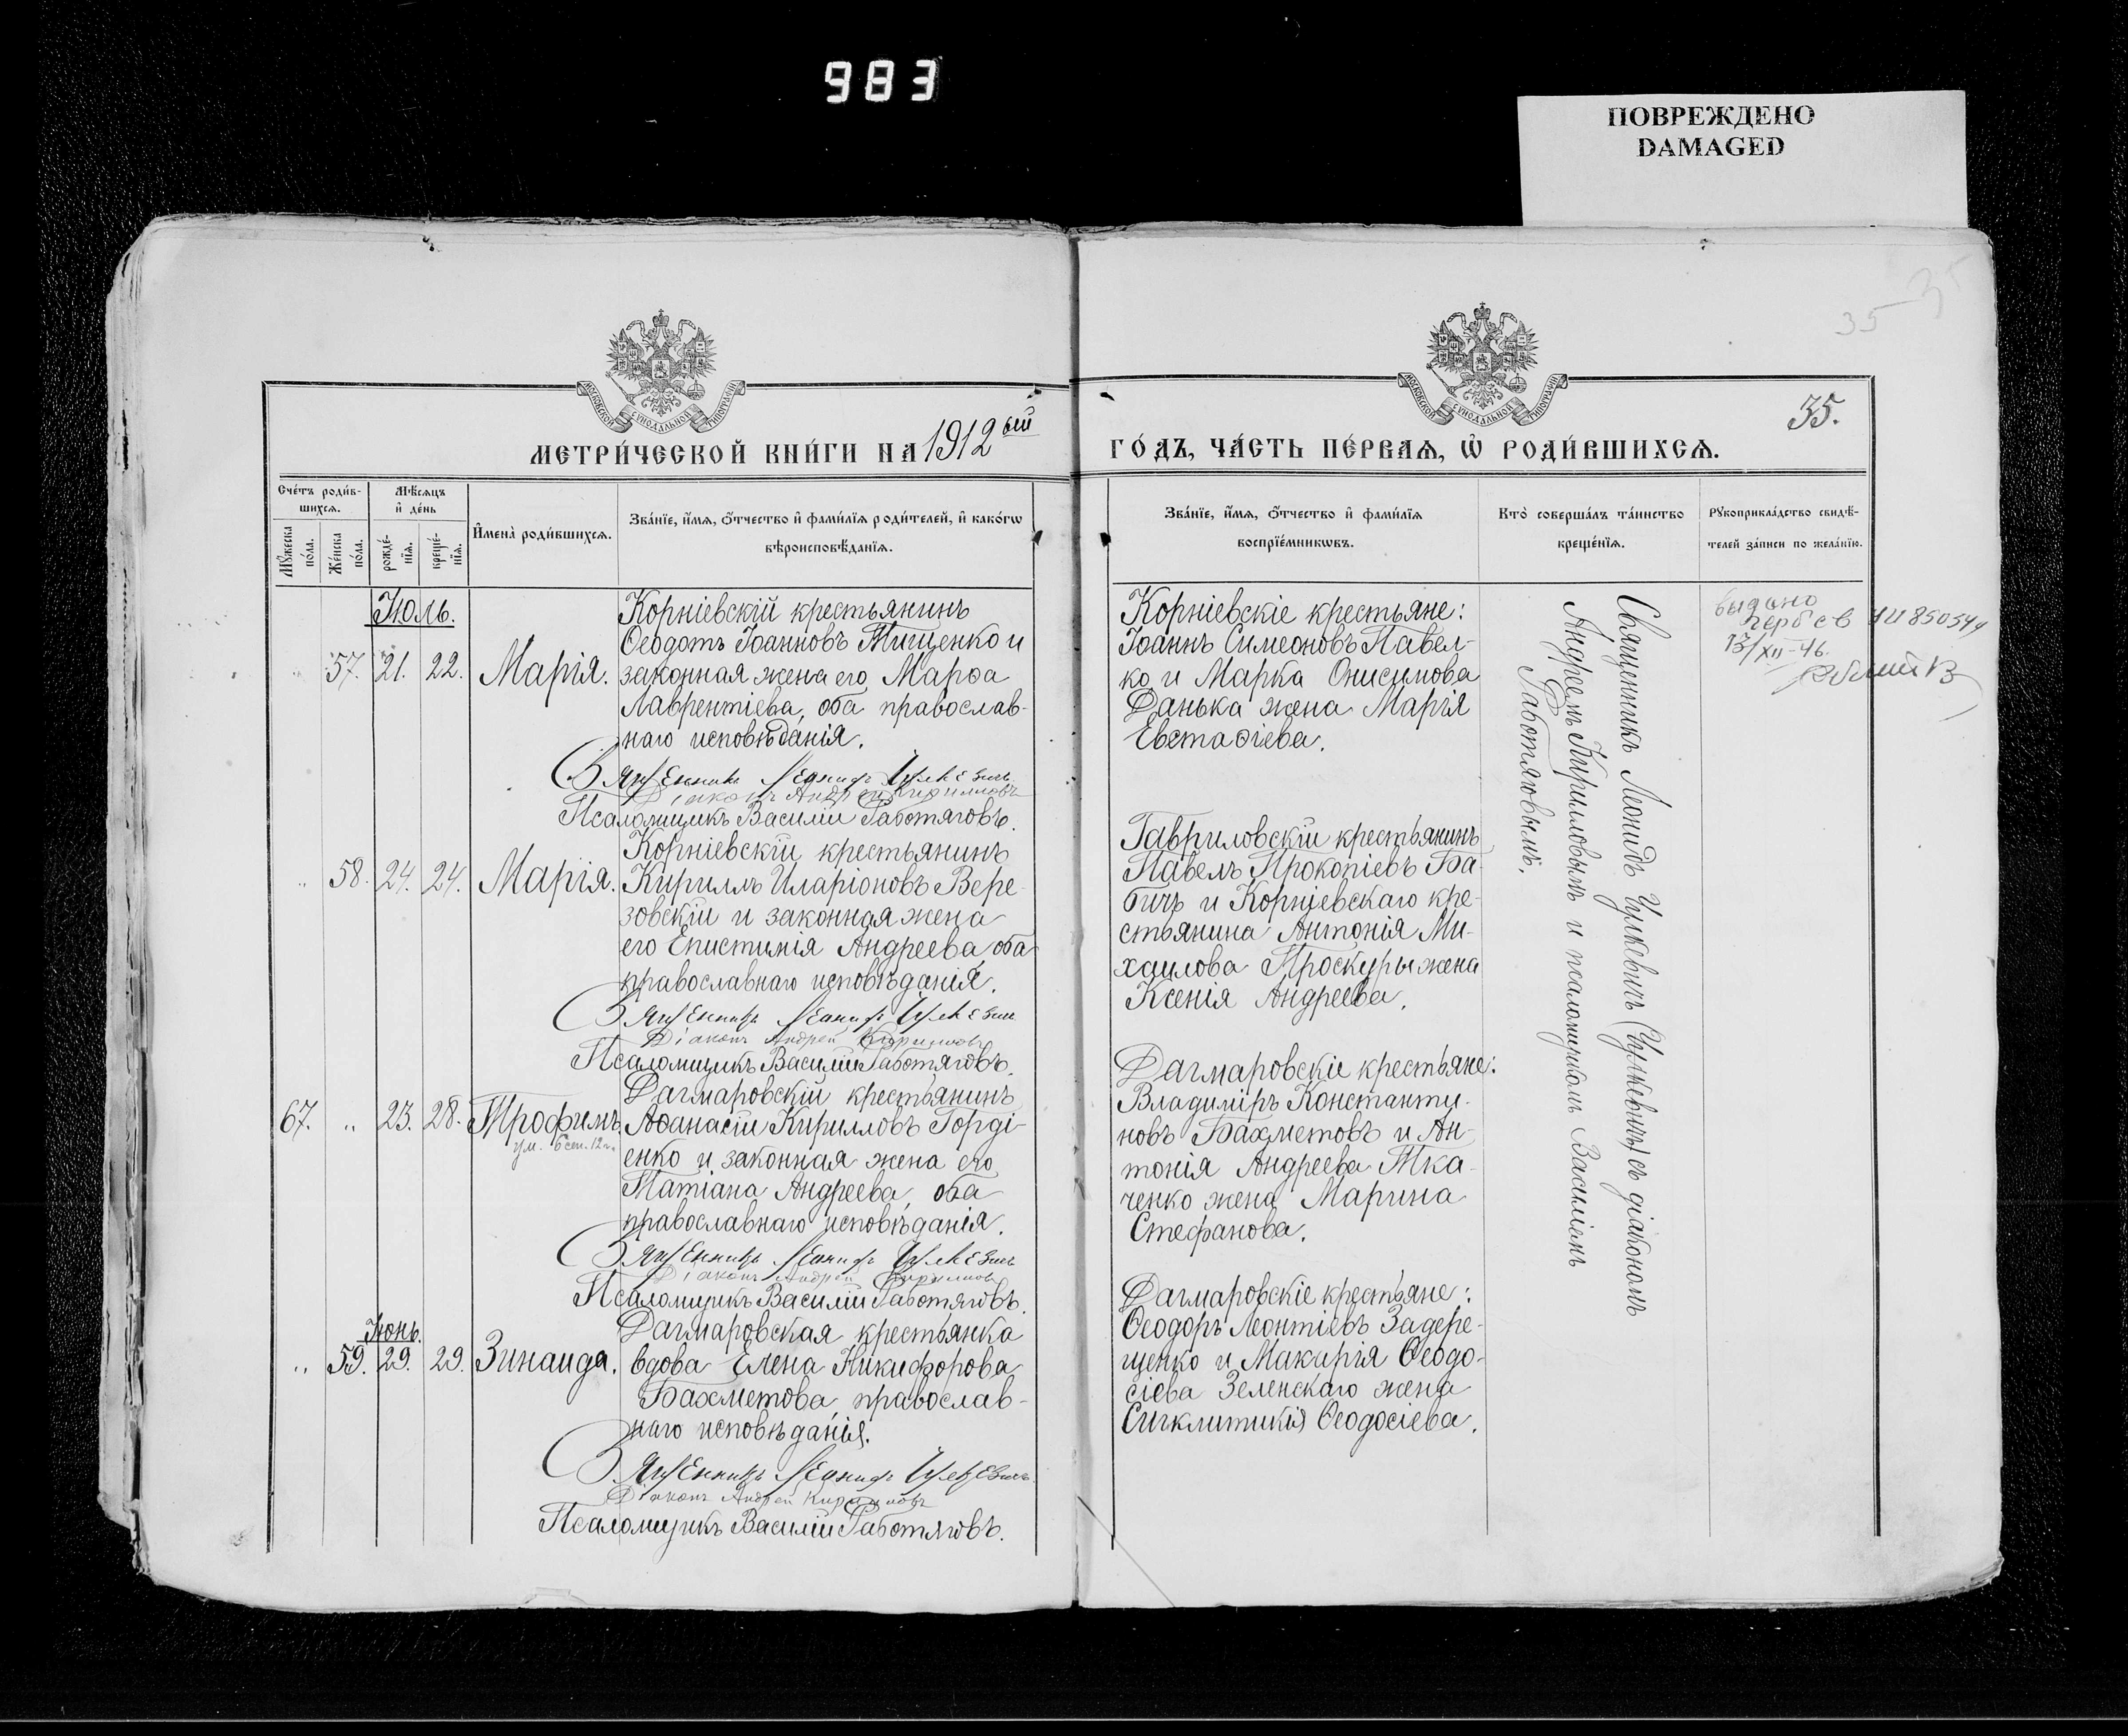 983
ПОВРЕЖДЕНО
DAMAGED
35
35
МОСКОВСКОЙ СѴНОДАЛЬНОЙ ТИПОГРАФІИ
МОСКОВСКОЙ СѴНОДАЛЬНОЙ ТИПОГРАФІИ
35.
МЕТРИ́ЧЕСКОЙ КНИ́ГИ НА 1912 ый
ГО́ДЪ, ЧА́СТЬ ПЕ́РВАѦ, Ѡ҆ РОДИ́ВШИХСѦ.
Сче́тъ роди́в-
шихсѧ.
Мꙋ́жеска
по́ла.
Же́нска
по́ла.
Мѣ́сѧцъ
и҆ де́нь
рожде́-
нїѧ.
креще́-
нїѧ.
И҆мена̀ роди́вшихсѧ.
Зва́нїе, и҆́мѧ, ѻ҆́тчество и҆ фами́лїѧ роди́телей, и҆ како́гѡ
вѣроисповѣ́данїѧ.
Зва́нїе, и҆́мѧ, ѻ҆́тчество и҆ фами́лїѧ
воспрїе́мникѡвъ.
Кто̀ соверша́лъ та́инство
креще́нїѧ.
Рꙋкоприкла́дство свидѣ́-
телей за́писи по жела́нїю.
Іюль.
57. 21. 22. Марія.
Корніевскій крестьянинъ
Ѳеодотъ Іоанновъ Тищенко и
законная жена его Марѳа
Лаврентіева, оба православ-
наго исповѣданія.
Священникъ Леонидъ Цулкевичъ
Діаконъ Андрей Кирилловъ
Псаломщикъ Василій Работяговъ.
Корніевскіе крестьяне:
Іоаннъ Симеоновъ Павел-
ко и Марка Онисимова
Данька жена Марія
Евстаѳіева.
Священникъ Леонидъ Цулкевичъ (Цулкевичъ) съ діакономъ
Андреемъ Кириловымъ и псаломщикомъ Василіемъ
Работяговымъ.
выдано
герб с в ЧИ 850344
13/XII-46.
58. 24. 24. Марія.
Корніевскій крестьянинъ
Кириллъ Иларіоновъ Бере-
зовскій и законная жена
его Епистимія Андреева, оба
православнаго исповѣданія.
Священникъ Леонидъ Цулкевичъ
Діаконъ Андрей Кирилловъ
Псаломщикъ Василій Работяговъ.
Гавриловскій крестьянинъ
Павелъ Прокопіевъ Ба-
бичъ и Корніевскаго кре-
стьянина Антонія Ми-
хаилова Проскуры жена
Ксенія Андреева.
67. 23. 28. Трофимъ.
ум. 6 сен. 12 г.
Дагмаровскій крестьянинъ
Аѳанасій Кирилловъ Горді-
енко и законная жена его
Татіана Андреева, оба
православнаго исповѣданія.
Священникъ Леонидъ Цулкевичъ
Діаконъ Андрей Кирилловъ
Псаломщикъ Василій Работяговъ.
Дагмаровскіе крестьяне:
Владиміръ Константи-
новъ Бахметовъ и Ан-
тонія Андреева Тка-
ченко жена Марина
Стефанова.
Іюнь.
59. 29. 29. Зинаида.
Дагмаровская крестьянка
вдова Елена Никифорова
Бахметова, православ-
наго исповѣданія.
Священникъ Леонидъ Цулкевичъ
Діаконъ Андрей Кирилловъ
Псаломщикъ Василій Работяговъ.
Дагмаровскіе крестьяне:
Ѳеодоръ Леонтіевъ Задере-
щенко и Макарія Ѳеодо-
сіева Зеленскаго жена
Сигклитикія Ѳеодосіева.